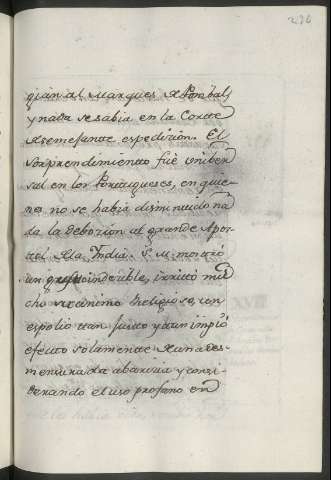 236
gian al Marques de Pombal,
y nada se sabia en la Corte
de semejante espedizion. El
sorprendimiento fué uniber
sal en los Portugueses, en quie-
nes no se habia disminuido na
da la debozion al grande Apos-
tol de la India. S. M. mostró
un indecible, irritó mu
cho su animo Religioso, un
espolio tan justo y tan impió
efecto solamente de una des-
mensurada abaricia y consi-
derando el uso profano en